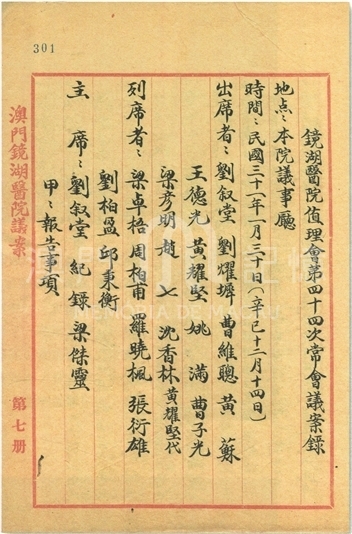 301
鏡湖醫院值理會第四十四次常會議案錄
地点：本院議事廳
時間：民國三十一年一月三十日（辛巳十二月十四日）
出席者：劉叙堂 劉耀墀 曹維聰 黃蘇
王德光 黃耀堅 姚滿 曹子光
梁彥明 趙七 沈香林 黃耀堅代
列席者：梁卓梧 周柏甫 羅曉楓 張衍雄
劉柏盈 邱秉衡
主席：劉叙堂 紀錄 梁傑靈
甲：報告事項
澳門鏡湖醫院議案
第七册